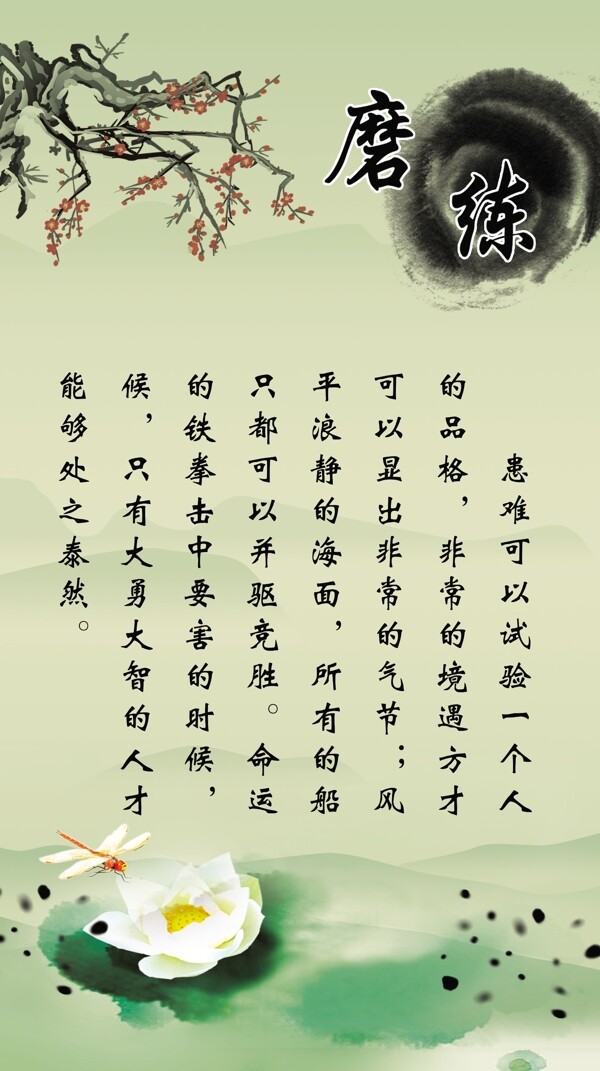 磨练
患难可以试验一个人
的品格，非常的境遇方才
可以显出非常的气节；风
平浪静的海面，所有的船
只都可以并驱竞胜。命运
的铁拳击中要害的时候，
候，只有大勇大智的人才
能够处之泰然。